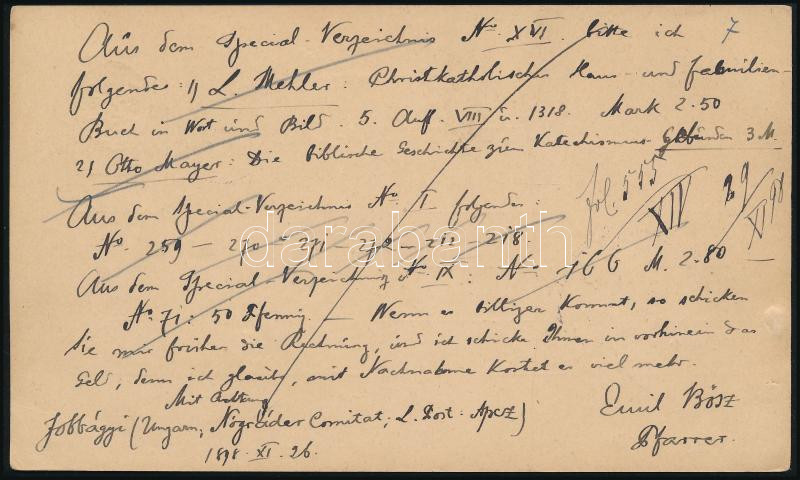 Aus dem Special-Verzeichnis No XVI. bitte ich 7
folgendes: 1) L. Mehler: Christkatholisches Haus- und Familien-
Buch in Wort und Bild. 5. Aufl. VIII u. 1318. Mark 2.50
2) Otto Mayer: Die biblische Geschichte zum Katechismus. Gebunden 3 M.
Aus dem Special-Verzeichnis No I folgendes:
fol. 555 XII 29/XI 98
No. 259 - 270 - 271 - 272 - 212 - 218.
Aus dem Special-Verzeichnis No IX: No 166 M. 2.80
No. 71: 50 Pfennig. — Wenn es billiger kommt, so schicken
Sie mir früher die Rechnung, und ich schicke Ihnen im vorhinein das
Geld, denn ich glaube, mit Nachnahme kostet es viel mehr.
Mit Achtung
Emil Bősz
Pfarrer.
Jobbágyi (Ungarn, Nógráder Comitat; L. Post: Apcz)
1898. XI. 26.
darabanth